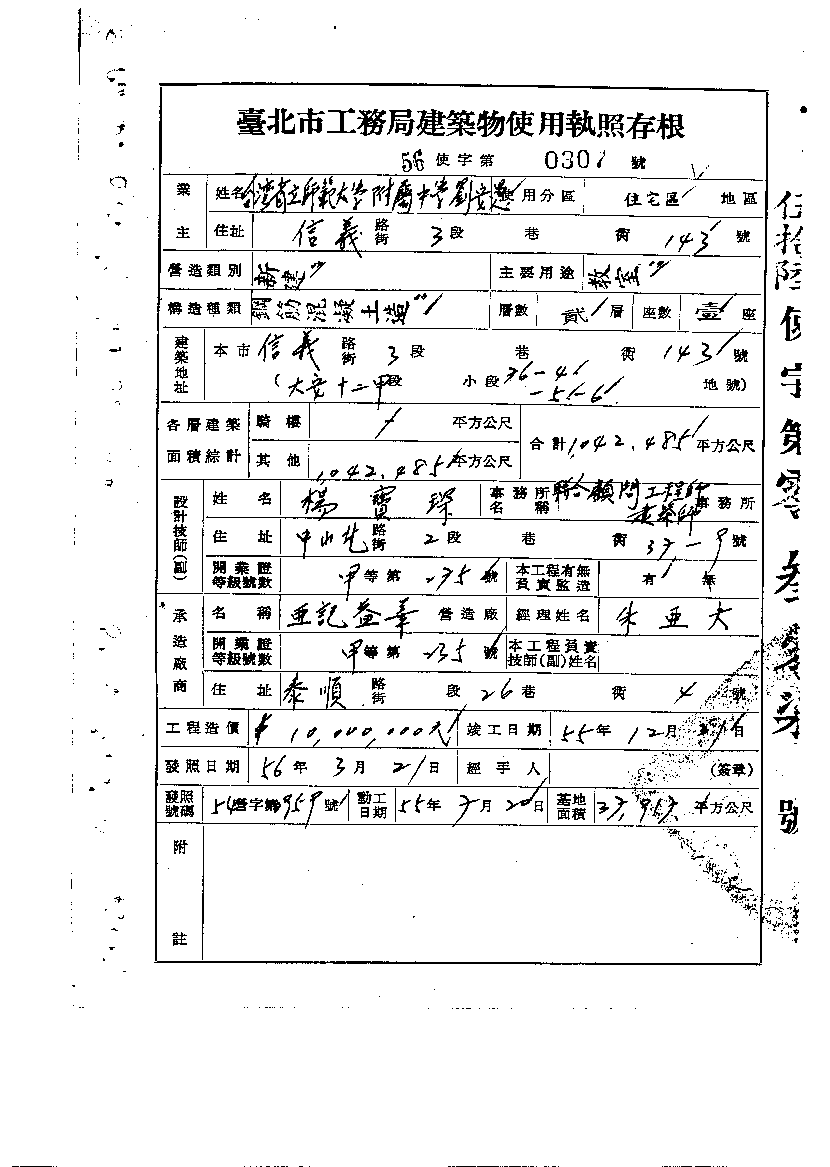 臺北市工務局建築物使用執照存根
56 使字第 0301 號
業主 姓名 台灣省立師範大學附屬中學 使用分區 住宅區 地區
住址 信義 路街 3 段 巷 衖 143 號
營造類別 新建 主要用途 教室
構造種類 鋼筋混凝土造 層數 貳 層 座數 壹 座
建築地址 本市 信義 路街 3 段 巷 衖 143 號
(大安十二甲段 小段 36-4 -5 -6 地號)
各層建築面積綜計 騎樓 平方公尺 合計 1,042.485 平方公尺
其他 1,042.485 平方公尺
設計技師(副) 姓名 楊寶琛 事務所名稱 聯合顧問工程師建築師 事務所
住址 中山北 路街 2 段 巷 衖 37-9 號
開業證等級號數 甲 等第 號 本工程有無負責監造 有 無
承造廠商 名稱 亜記益華 營造廠 經理姓名 朱亜大
開業證等級號數 甲 等第 號 本工程負責技師(副)姓名
住址 泰順 路街 段 26 巷 衖 4 號
工程造價 10,000,000元 竣工日期 55 年 12 月 日
發照日期 56 年 3 月 21 日 經手人 (簽章)
發照號碼 54 營字第 959 號 動工日期 55 年 月 20 日 基地面積 平方公尺
附註
伍拾陸使字第零叁 號